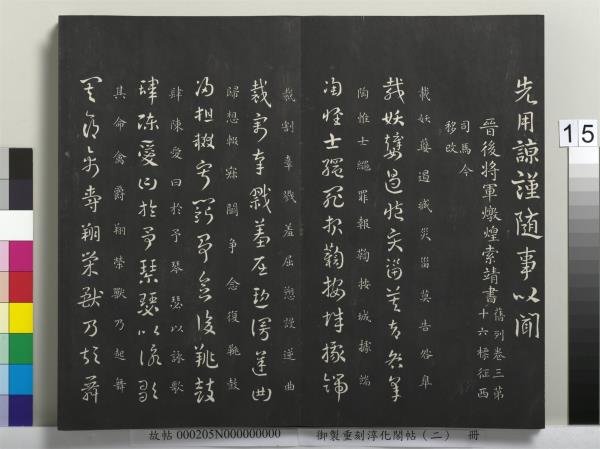 先用諒謹隨事以聞
晉後將軍燉煌索靖書
舊列卷三第
十六標征西
司馬今
移改
載妖孽遏滅災甾莫告咎皐
載妖孽遏滅災甾莫告咎皐
陶惟士繩罪報鞫按城據端
陶惟士繩罪報鞫按城據端
裁割辜戮羞屈愆謾逆曲
裁割辜戮羞屈愆謾逆曲
歸想寐鬬爭念復鞉鼓
歸想寐鬬爭念復鞉鼓
肆陳愛曰於予琴瑟以詠歌
肆陳愛曰於予琴瑟以詠歌
其命禽爵翔榮獸乃起舞
其命禽爵翔榮獸乃起舞
15
故帖 000205N000000000 御製重刻淳化閣帖（二） 冊